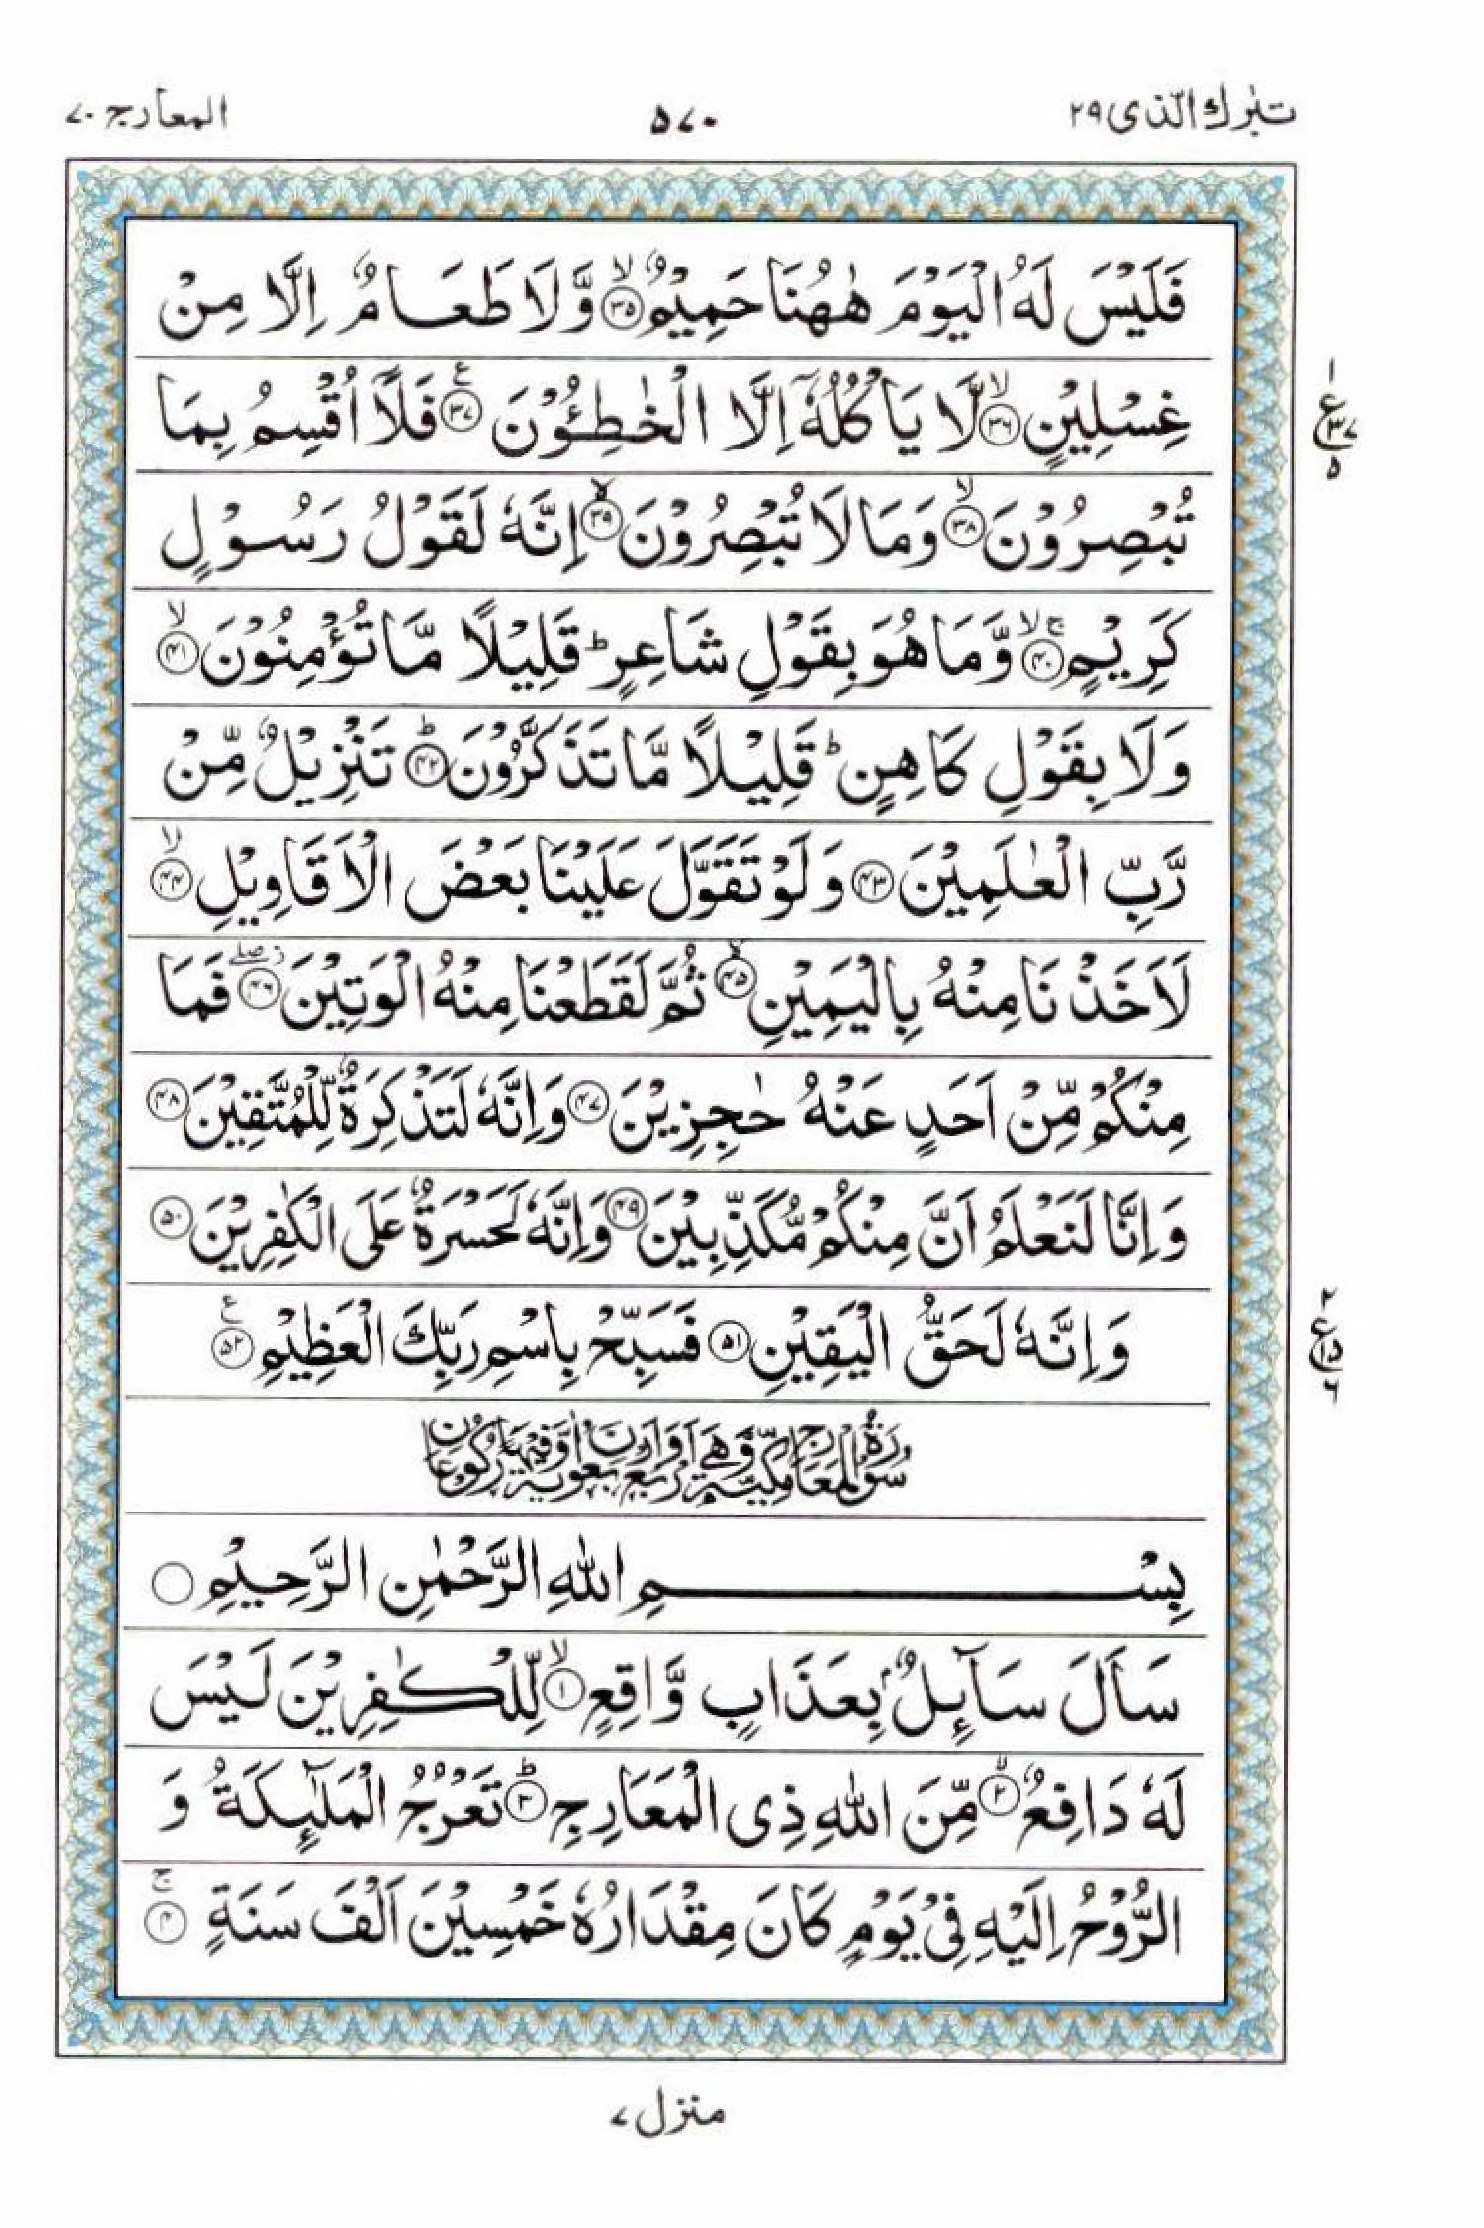 تبٰرك الّذی ۲۹
۵۷۰
المعارج ۷۰
فَلَیْسَ لَهُ الْیَوْمَ هٰهُنَا حَمِیْمٌ ۙ﴿۳۵﴾ وَّلَا طَعَامٌ اِلَّا مِنْ
غِسْلِیْنٍ ۙ﴿۳۶﴾ لَّا یَاْكُلُهٗۤ اِلَّا الْخٰطِـُٔوْنَ ﴿۳۷﴾ ع فَلَاۤ اُقْسِمُ بِمَا
تُبْصِرُوْنَ ۙ﴿۳۸﴾ وَمَا لَا تُبْصِرُوْنَ ۙ﴿۳۹﴾ اِنَّهٗ لَقَوْلُ رَسُوْلٍ
كَرِیْمٍ ۚۙ﴿۴۰﴾ وَّمَا هُوَ بِقَوْلِ شَاعِرٍ ؕ قَلِیْلًا مَّا تُؤْمِنُوْنَ ۙ﴿۴۱﴾
وَلَا بِقَوْلِ كَاهِنٍ ؕ قَلِیْلًا مَّا تَذَكَّرُوْنَ ؕ﴿۴۲﴾ تَنْزِیْلٌ مِّنْ
رَّبِّ الْعٰلَمِیْنَ ﴿۴۳﴾ وَلَوْ تَقَوَّلَ عَلَیْنَا بَعْضَ الْاَقَاوِیْلِ ۙ﴿۴۴﴾
لَاَخَذْنَا مِنْهُ بِالْیَمِیْنِ ۙ﴿۴۵﴾ ثُمَّ لَقَطَعْنَا مِنْهُ الْوَتِیْنَ ؗۖ﴿۴۶﴾ فَمَا
مِنْكُمْ مِّنْ اَحَدٍ عَنْهُ حٰجِزِیْنَ ﴿۴۷﴾ وَاِنَّهٗ لَتَذْكِرَةٌ لِّلْمُتَّقِیْنَ ﴿۴۸﴾
وَاِنَّا لَنَعْلَمُ اَنَّ مِنْكُمْ مُّكَذِّبِیْنَ ﴿۴۹﴾ وَاِنَّهٗ لَحَسْرَةٌ عَلَی الْكٰفِرِیْنَ ﴿۵۰﴾
وَاِنَّهٗ لَحَقُّ الْیَقِیْنِ ﴿۵۱﴾ فَسَبِّحْ بِاسْمِ رَبِّكَ الْعَظِیْمِ ﴿۵۲﴾ ع
سُوْرَةُ الْمَعَارِجِ مَكِّیَّةٌ وَّهِیَ اَرْبَعٌ وَّاَرْبَعُوْنَ اٰیَةً وَّفِیْهَا رُكُوْعَانِ
بِسْمِ اللّٰهِ الرَّحْمٰنِ الرَّحِیْمِ
سَاَلَ سَآىِٕلٌۢ بِعَذَابٍ وَّاقِعٍ ۙ﴿۱﴾ لِّلْكٰفِرِیْنَ لَیْسَ
لَهٗ دَافِعٌ ۙ﴿۲﴾ مِّنَ اللّٰهِ ذِی الْمَعَارِجِ ؕ﴿۳﴾ تَعْرُجُ الْمَلٰٓىِٕكَةُ وَ
الرُّوْحُ اِلَیْهِ فِیْ یَوْمٍ كَانَ مِقْدَارُهٗ خَمْسِیْنَ اَلْفَ سَنَةٍ ۚ﴿۴﴾
۱
ع
۳۷
۵
۲
ع
۱۵
۶
منزل ۷